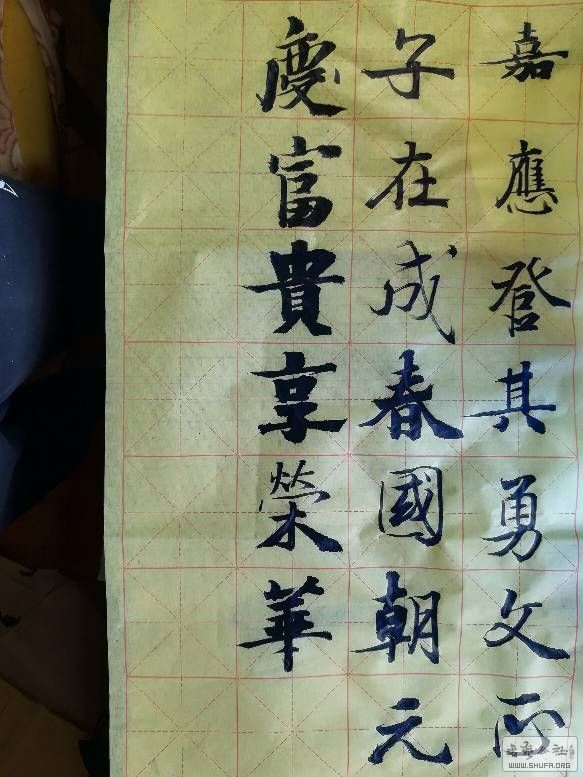 嘉應登其勇文
子在成春國朝元
慶富貴享榮華
WWW.SHUFA.ORG